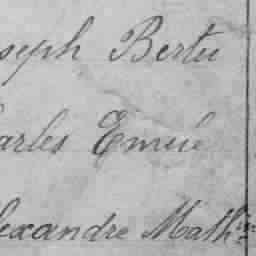 seph Bertu
arles Emile
lexandre Math